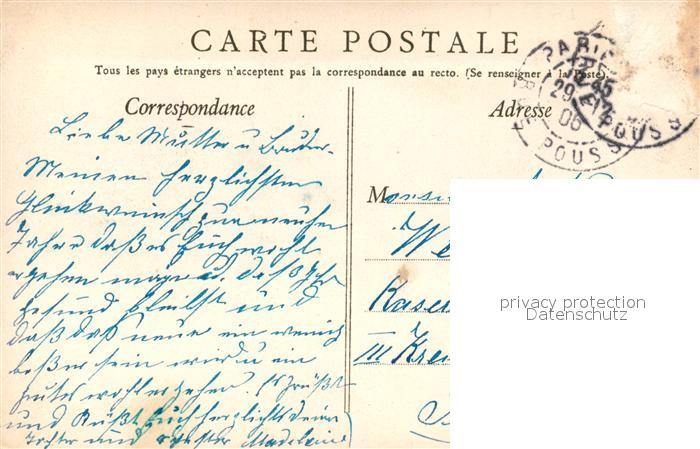 CARTE POSTALE
Tous les pays étrangers n'acceptent pas la correspondance au recto. (Se renseigner à la Poste).
Correspondance
Adresse
PARIS
45
29
06
POUSS
POUSS
Liebe Mutter u Bruder.
Meinen herzlichsten
Glückwunsch zum neuhen
Jahre daß es Euch wohl
ergehen mage u. daß Ihr
gesund bleibst und
daß das neue ein wenig
beßer sein wird u ein
gutes wohlergehen. Es grüßt
und Küßt Euch herzlichst deine
Tochter und Madeleine
Monsie
We
III Kre
privacy protection
Datenschutz